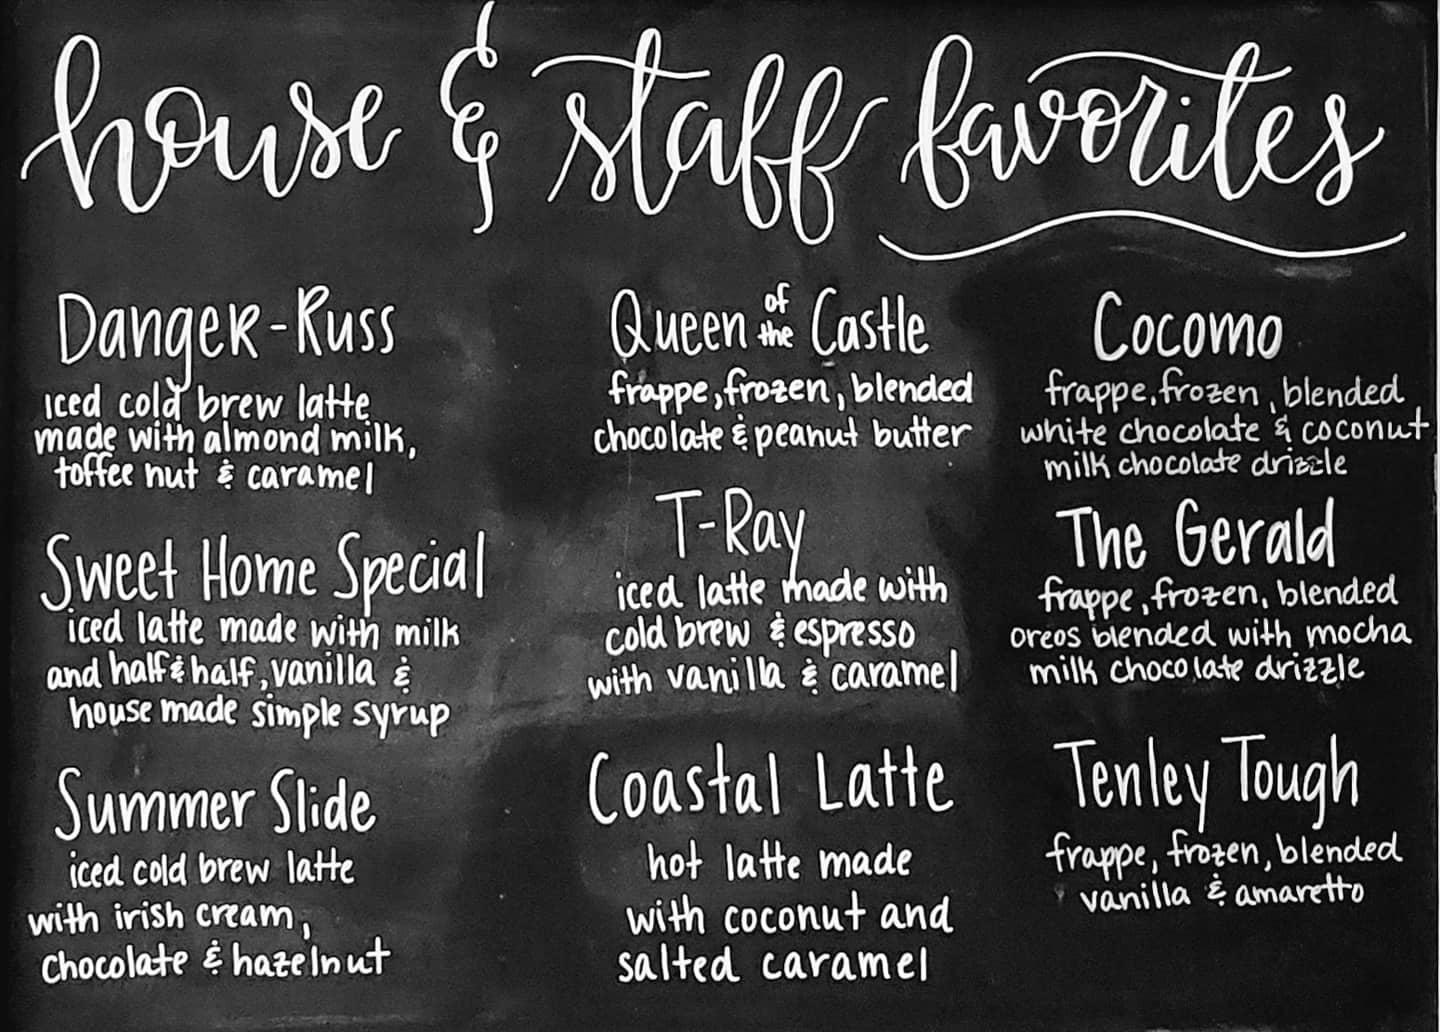 house & staff favorites
Danger-Russ
iced cold brew latte
made with almond milk,
toffee nut & caramel
Sweet Home Special
iced latte made with milk
and half & half, vanilla &
house made simple syrup
Summer Slide
iced cold brew latte
with irish cream,
chocolate & hazelnut
Queen of the Castle
frappe, frozen, blended
chocolate & peanut butter
T-Ray
iced latte made with
cold brew & espresso
with vanilla & caramel
Coastal Latte
hot latte made
with coconut and
salted caramel
Cocomo
frappe, frozen, blended
white chocolate & coconut
milk chocolate drizzle
The Gerald
frappe, frozen, blended
oreos blended with mocha
milk chocolate drizzle
Tenley Tough
frappe, frozen, blended
vanilla & amaretto